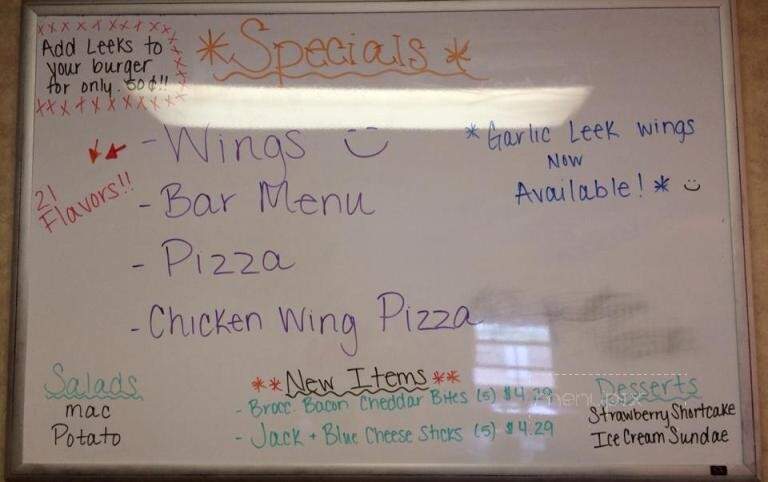 Add Leeks to
your burger
for only .50¢!!
*Specials*
- Wings
21
Flavors!!
- Bar Menu
- Pizza
- Chicken Wing Pizza
*Garlic Leek wings
Now
Available!*
Salads
mac
Potato
**New Items**
- Brocc Bacon Cheddar Bites (5) $4.29
- Jack + Blue Cheese Sticks (5) $4.29
Desserts
Strawberry Shortcake
Ice Cream Sundae
menupix